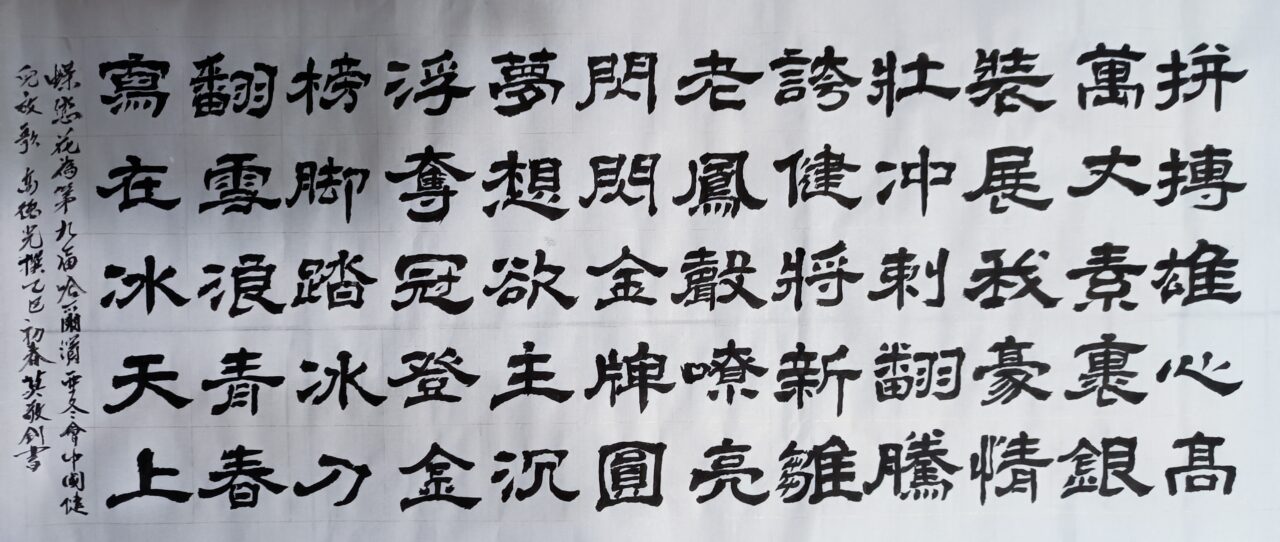 拼搏雄心高
萬丈素裹銀
裝展我豪情
壯冲刺翻騰
誇健將新雛
老鳳聲嘹亮
閃閃金牌圓
夢想欲主沉
浮奪冠登金
榜脚踏冰刀
翻雪浪青春
寫在冰天上
蝶戀花為第九届哈爾濱亞冬會中國健
兒放歌 德光撰乙巳初春 敬釗書